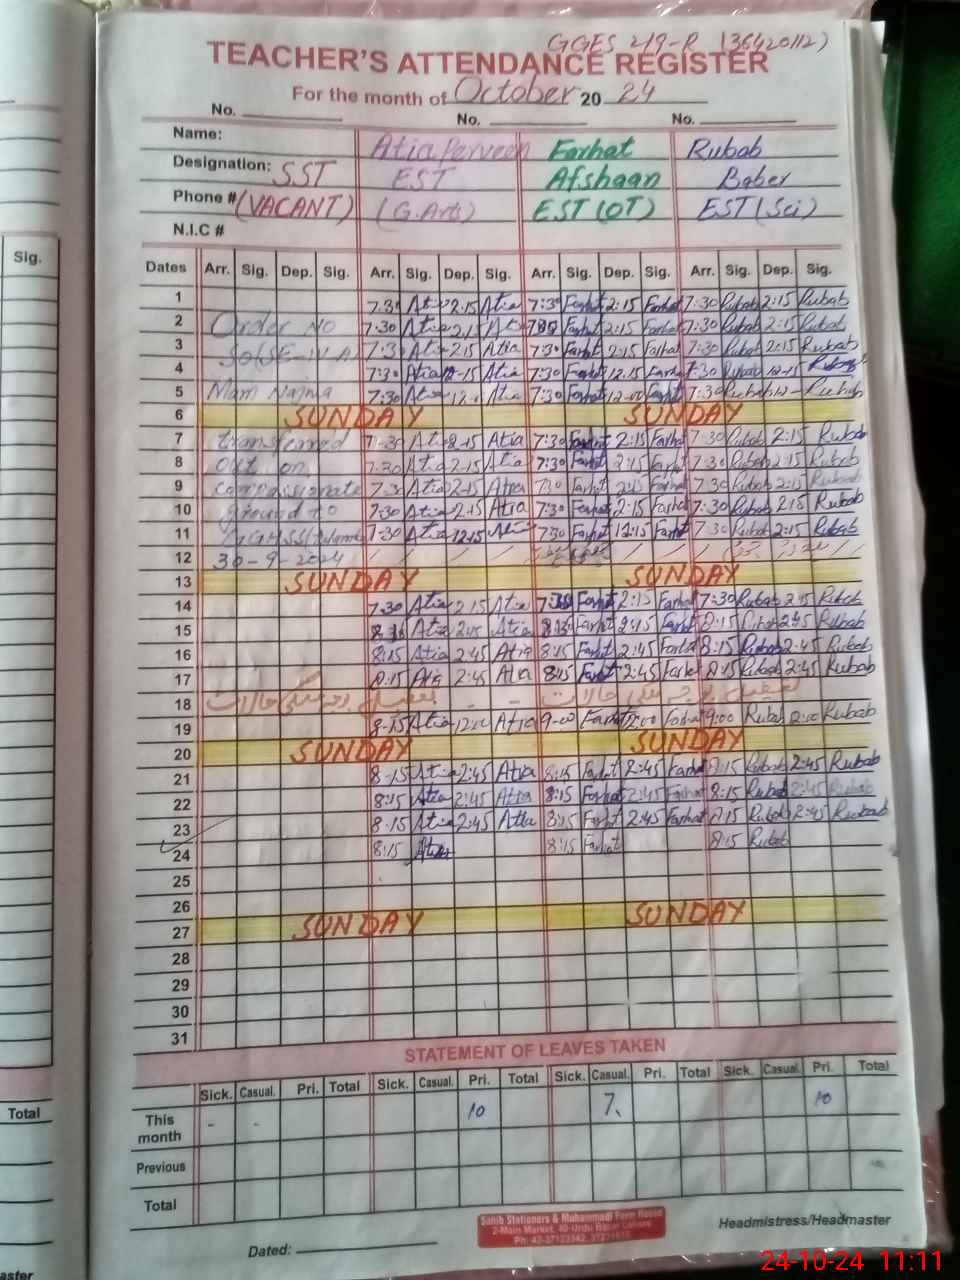 GGES 219-R (36420112)
TEACHER'S ATTENDANCE REGISTER
For the month of October 20 24
No. No. No.
Name: Atia Parveen Farhat Rubab
Designation: SST EST Afshaan Baber
Phone # (VACANT) (G.Arts) EST (OT) EST (Sci)
N.I.C #
Sig. Dates Arr. Sig. Dep. Sig. Arr. Sig. Dep. Sig. Arr. Sig. Dep. Sig. Arr. Sig. Dep. Sig.
1 7:30 Atia 2:15 Atia 7:30 Farhat 2:15 Farhat 7:30 Rubab 2:15 Rubab
2 Order No 7:30 Atia 2:15 Farhat 2:15 Farhat 7:30 Rubab 2:15 Rubab
3 7:30 Atia 2:15 Atia 7:30 Farhat 2:15 Farhat 7:30 Rubab 2:15 Rubab
4 7:30 Atia Atia 7:30 Farhat 12:15 Farhat 7:30 Rubab
5 Mam Najma 7:30 Atia Atia 7:30 Farhat Farhat 7:30 Rubab Rubab
6 SUNDAY SUNDAY
7 transferred 7:30 Atia 2:15 Atia 7:30 Farhat 2:15 Farhat 7:30 Rubab 2:15 Rubab
8 out on 7:30 Atia 2:15 Atia 7:30 Farhat 2:15 Farhat 7:30 Rubab 2:15 Rubab
9 compassionate 7:30 Atia 2:15 Atia 7:30 Farhat 2:15 Farhat 7:30 Rubab 2:15 Rubab
10 ground to 7:30 Atia 2:15 Atia 7:30 Farhat 2:15 Farhat 7:30 Rubab 2:15 Rubab
11 7:30 Atia 12:15 Atia 7:30 Farhat 12:15 Farhat 7:30 Rubab 2:15 Rubab
12 30-9-2024
13 SUNDAY SUNDAY
14 7:30 Atia 2:15 Atia Farhat 2:15 Farhat 7:30 Rubab 2:15 Rubab
15 Atia 2:45 Atia Farhat 2:45 Farhat 8:15 2:45 Rubab
16 8:15 Atia 2:45 Atia 8:15 Farhat 2:45 Farhat 8:15 Rubab 2:45 Rubab
17 8:15 Atia 2:45 Atia 8:15 Farhat 2:45 Farhat 8:15 Rubab 2:45 Rubab
18 تعطیل بوجہ ملکی حالات تعطیل بوجہ ملکی حالات
19 8-15 Atia 12:00 Atia 9-00 Farhat Farhat 9:00 Rubab Rubab
20 SUNDAY SUNDAY
21 8-15 Atia 2:45 Atia 8:15 Farhat 2:45 Farhat 8:15 Rubab 2:45 Rubab
22 8:15 Atia 2:45 Atia 8:15 Farhat 2:45 Farhat 8:15 Rubab 2:45 Rubab
23 8-15 Atia 2:45 Atia 8:15 Farhat 2:45 Farhat 8:15 Rubab 2:45 Rubab
24 8:15 Atia 8:15 Farhat 8:15 Rubab
25
26
27 SUNDAY SUNDAY
28
29
30
31
STATEMENT OF LEAVES TAKEN
Sick. Casual. Pri. Total Sick. Casual. Pri. Total Sick. Casual. Pri. Total Sick. Casual. Pri. Total
Total This month - - 10 7 10
Previous
Total
Sahib Stationers & Muhammadi Form House
2-Main Market, 40-Urdu Bazar Lahore
Headmistress/Headmaster
Dated:
24-10-24 11:11